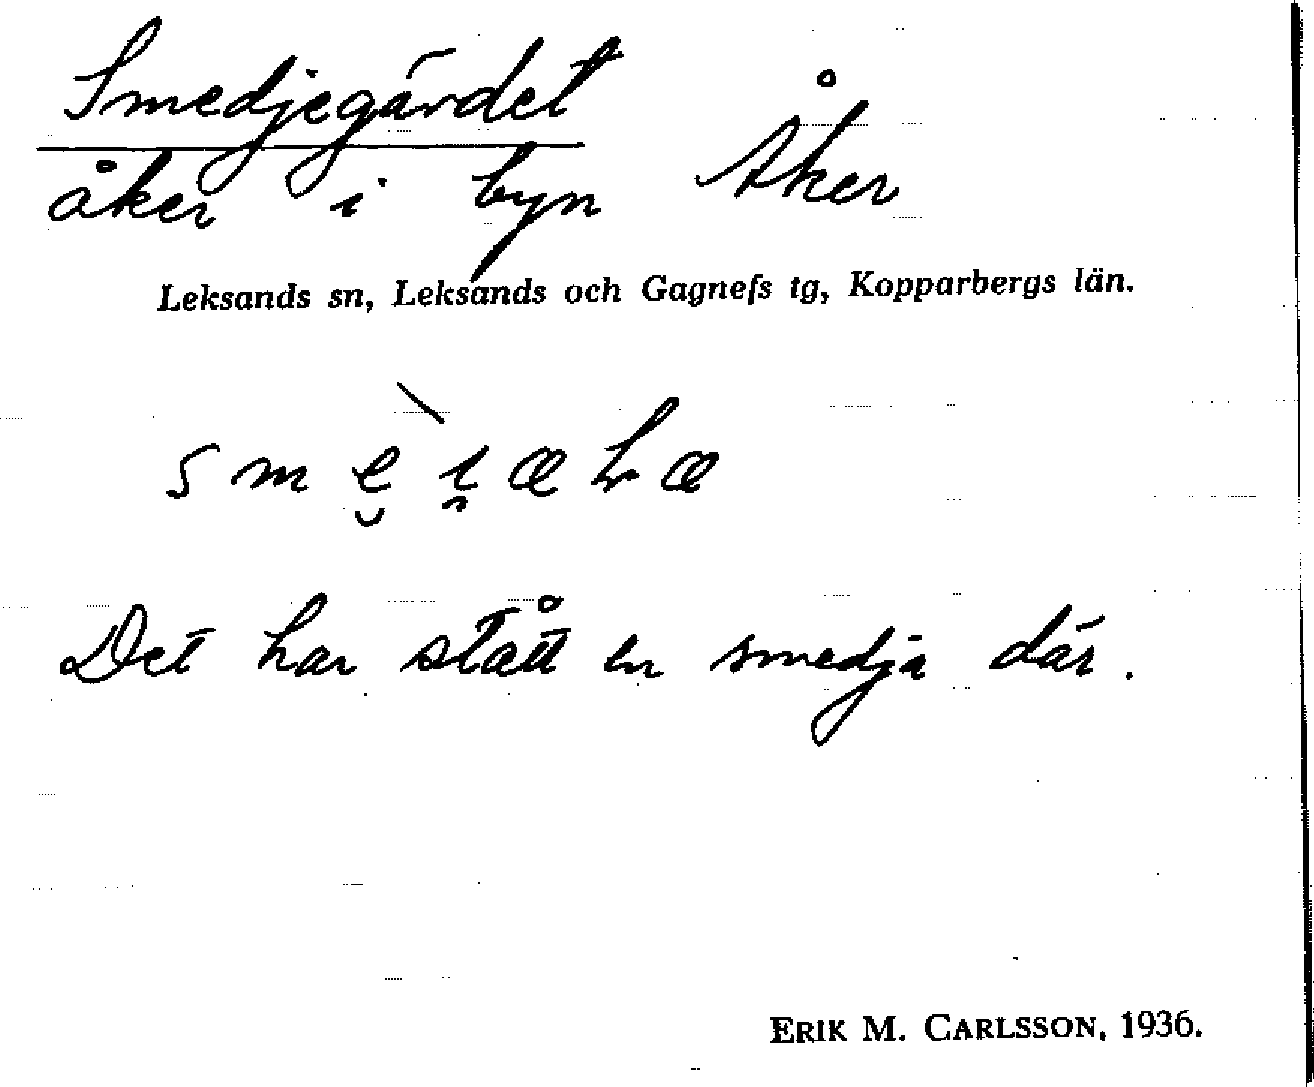 Smedjegärdet
åker i byn Åker
Leksands sn, Leksands och Gagnefs tg, Kopparbergs län.
Det har stått en smedja där.
ERIK M. CARLSSON, 1936.